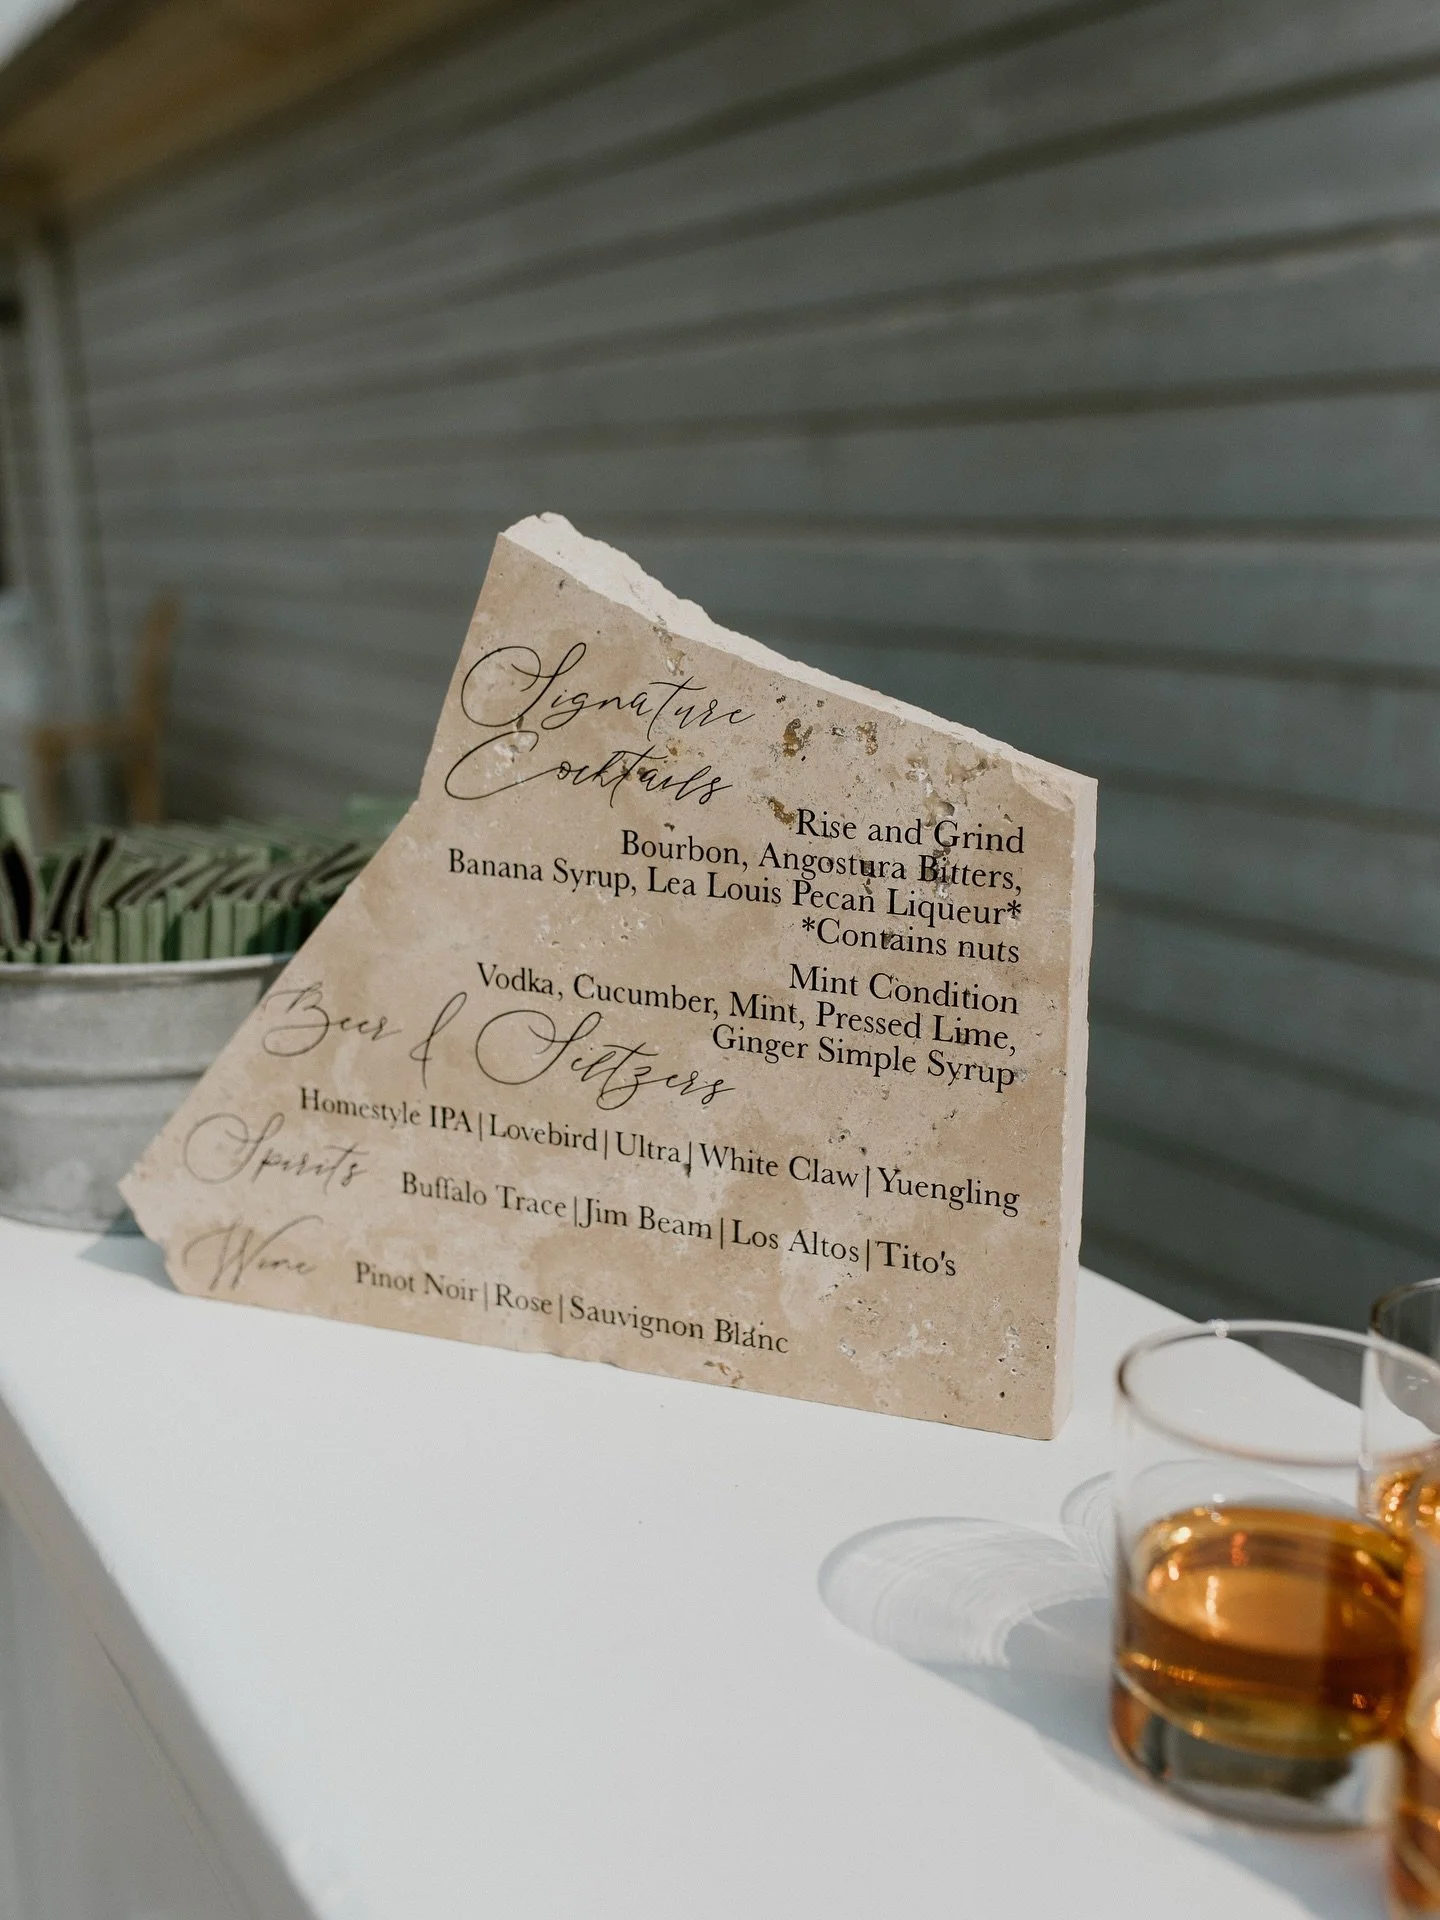 Signature
Cocktails
Rise and Grind
Bourbon, Angostura Bitters,
Banana Syrup, Lea Louis Pecan Liqueur*
*Contains nuts
Mint Condition
Vodka, Cucumber, Mint, Pressed Lime,
Ginger Simple Syrup
Beer & Seltzers
Homestyle IPA|Lovebird|Ultra|White Claw|Yuengling
Spirits
Buffalo Trace|Jim Beam|Los Altos|Tito's
Wine
Pinot Noir|Rose|Sauvignon Blanc